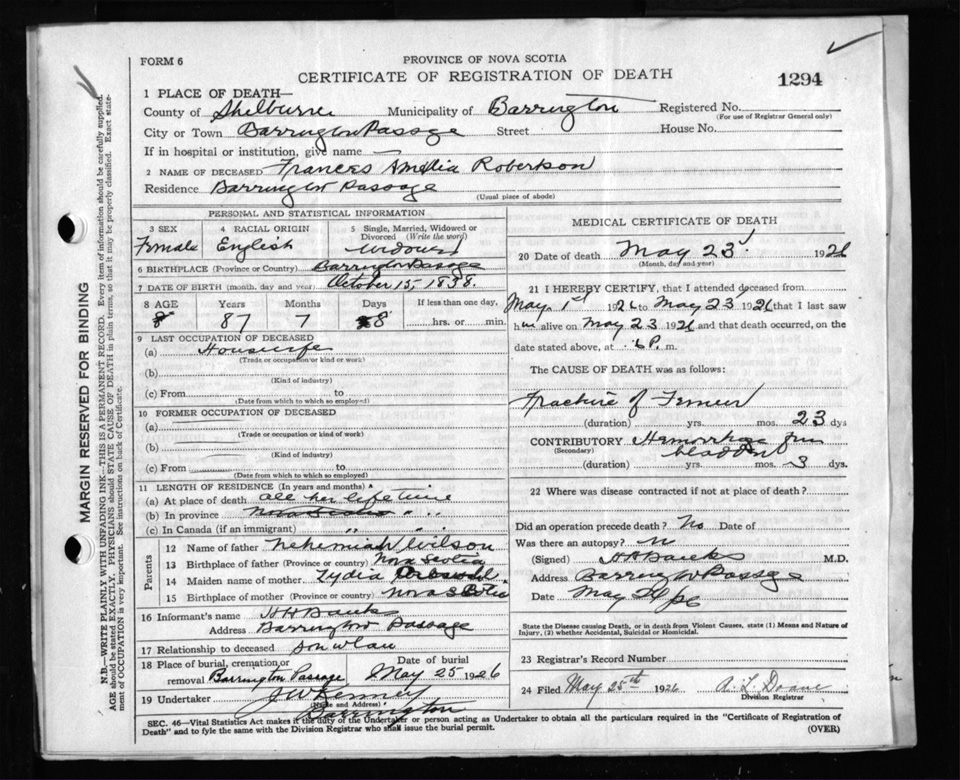 FORM 6
PROVINCE OF NOVA SCOTIA
CERTIFICATE OF REGISTRATION OF DEATH
1294
1 PLACE OF DEATH—
County of Shelburne Municipality of Barrington Registered No.
(For use of Registrar General only)
City or Town Barrington Passage Street House No.
If in hospital or institution, give name —
2 NAME OF DECEASED Frances Amelia Robertson
Residence Barrington Passage
(Usual place of abode)
PERSONAL AND STATISTICAL INFORMATION
3 SEX 4 RACIAL ORIGIN 5 Single, Married, Widowed or Divorced (Write the word)
Female English Widowed
6 BIRTHPLACE (Province or Country) Barrington Passage
7 DATE OF BIRTH (month, day and year) October 15, 1838.
8 AGE Years Months Days If less than one day,
87 7 8 hrs. or min.
9 LAST OCCUPATION OF DECEASED
(a) Housewife
(Trade or occupation or kind or work)
(b)
(Kind of industry)
(c) From to
(Date from which to which so employed)
10 FORMER OCCUPATION OF DECEASED
(a)
(Trade or occupation or kind of work)
(b)
(Kind of industry)
(c) From to
(Date from which to which so employed)
11 LENGTH OF RESIDENCE (In years and months)
(a) At place of death all her life time
(b) In province " "
(c) In Canada (if an immigrant) " "
Parents
12 Name of father Nehemiah Wilson
13 Birthplace of father (Province or country) Nova Scotia
14 Maiden name of mother Lydia
15 Birthplace of mother (Province or country) Nova Scotia
16 Informant's name HH Banks
Address Barrington Passage
17 Relationship to deceased son n law
18 Place of burial, cremation or removal Barrington Passage Date of burial May 25 1926
19 Undertaker J W Kenney
(Name and Address)
Barrington
MEDICAL CERTIFICATE OF DEATH
20 Date of death May 23 1926
(Month, day and year)
21 I HEREBY CERTIFY, that I attended deceased from
May 1st 1926 to May 23 1926 that I last saw
her alive on May 23 1926 and that death occurred, on the
date stated above, at 6 P. m.
The CAUSE OF DEATH was as follows:
Fracture of Femur
(duration) yrs. mos. 23 dys
CONTRIBUTORY Hemorrhage from
(Secondary) bladder
(duration) yrs. mos. 3 dys.
22 Where was disease contracted if not at place of death?
Did an operation precede death? No Date of
Was there an autopsy? no
(Signed) HH Banks M.D.
Address Barrington Passage
Date May 24 / 26
State the Disease Causing Death, or in death from Violent Causes, state (1) Means and Nature of
Injury, (2) whether Accidental, Suicidal or Homicidal.
23 Registrar's Record Number
24 Filed May 25th 1926 A. L. Doane
Division Registrar
SEC. 46—Vital Statistics Act makes it the duty of the Undertaker or person acting as Undertaker to obtain all the particulars required in the "Certificate of Registration of
Death" and to fyle the same with the Division Registrar who shall issue the burial permit.
(OVER)
MARGIN RESERVED FOR BINDING
N.B.—WRITE PLAINLY WITH UNFADING INK—THIS IS A PERMANENT RECORD. Every item of information should be carefully supplied.
AGE should be stated EXACTLY. PHYSICIANS should STATE CAUSE OF DEATH in plain terms, so that it may be properly classified. Exact state-
ment of OCCUPATION is very important. See instructions on back of Certificate.